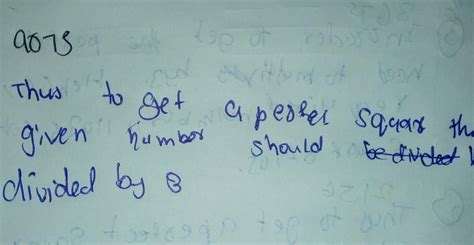 9075
Thus to get a perfer squar th
given number should be divided
divided by 3